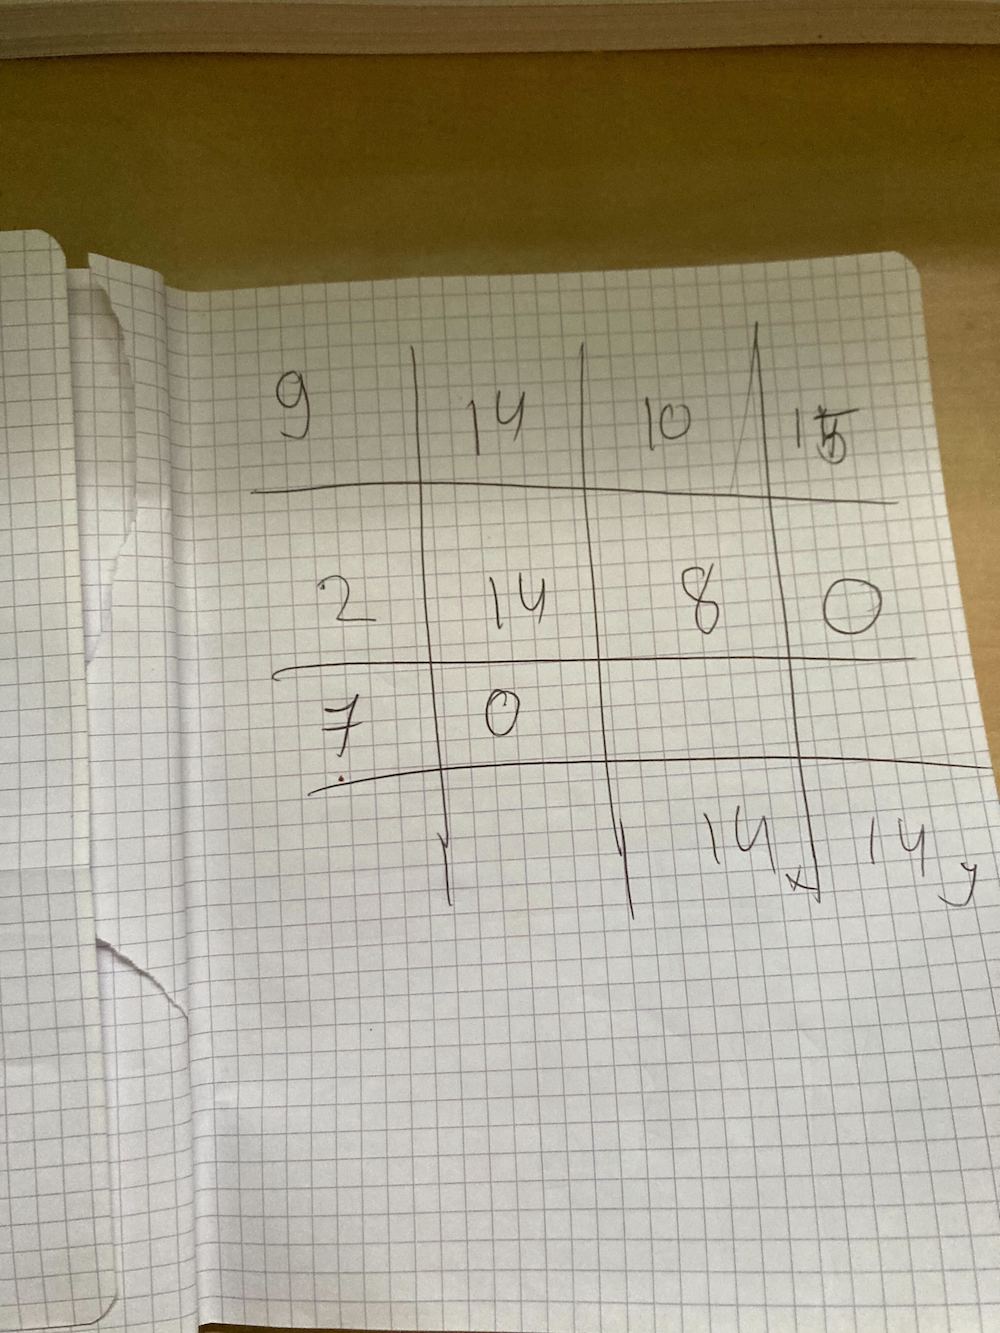 9 14 10 15
2 14 8 0
7 0
14x 14y